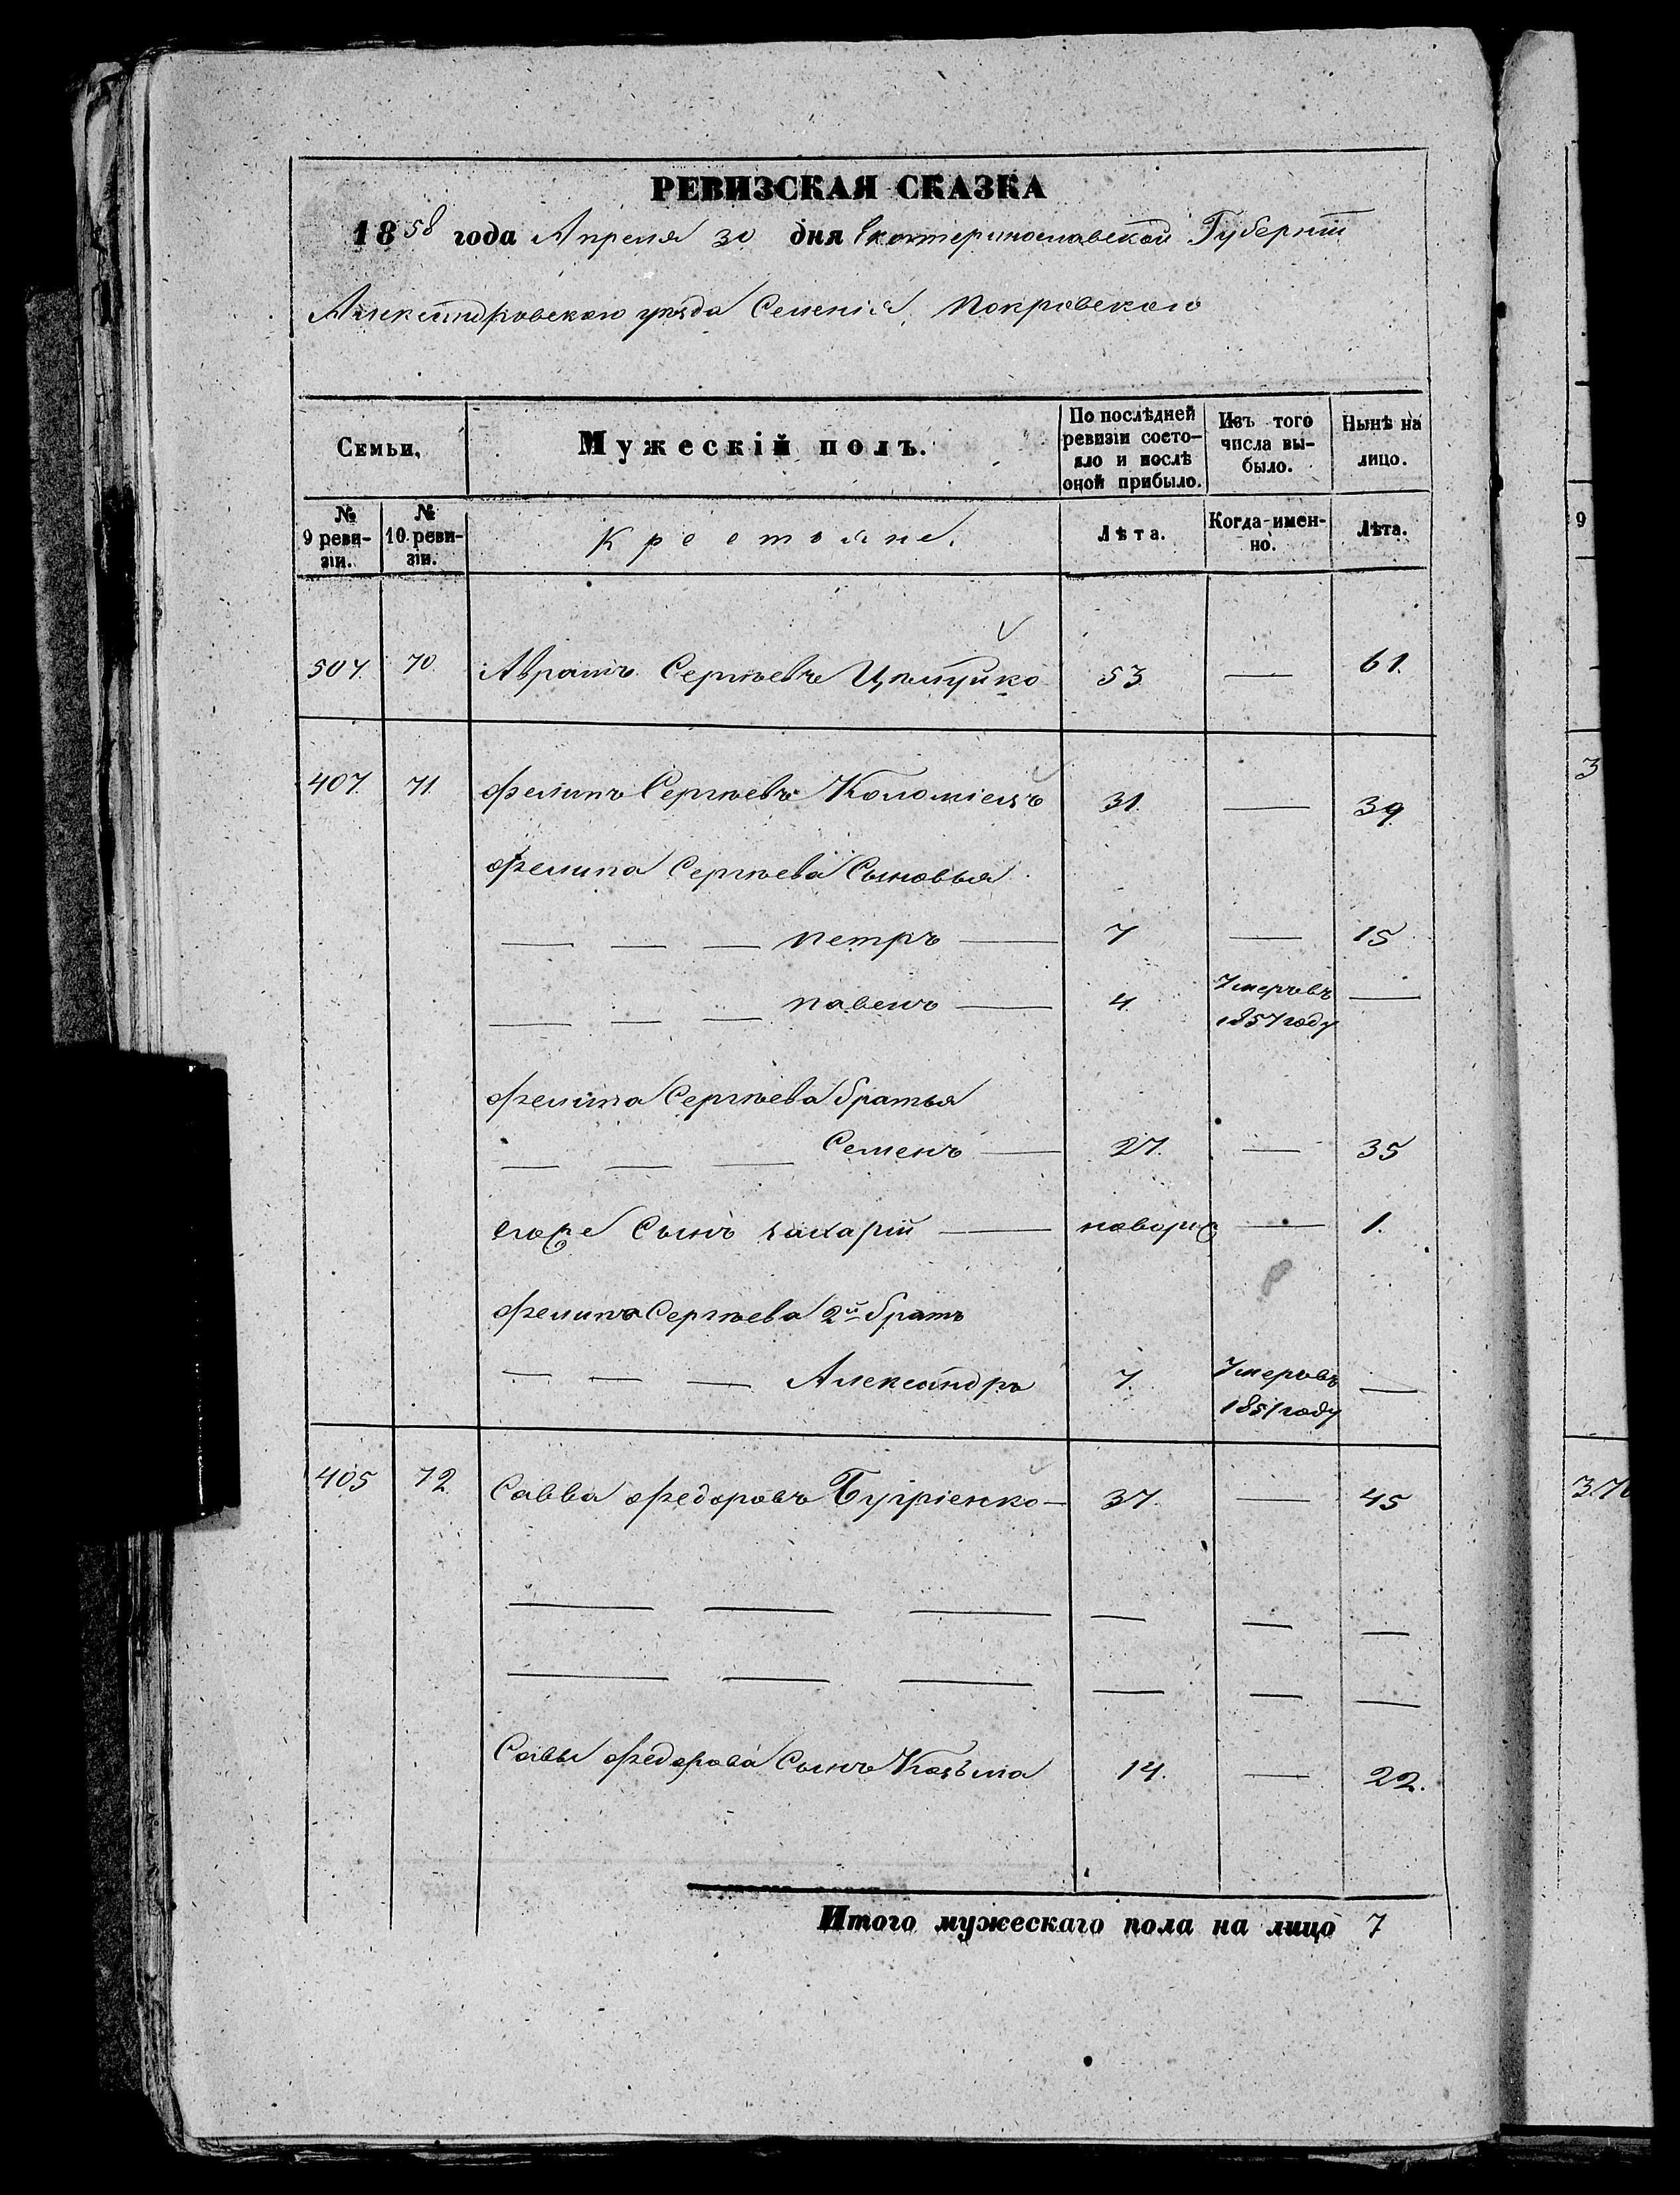 РЕВИЗСКАЯ СКАЗКА
1858 года Апреля 30 дня Екатеринославской Губернии
Александровского уезда Селения Покровского
Семьи, Мужескій полъ. По послѣдней ревизіи состо- яло и послѣ оной прибыло. Изъ того числа вы- было. Нынѣ на лицо.
№ 9 реви- зіи. № 10 реви- зіи. Крестьяне. Лѣта. Когда имен- но. Лѣта.
507. 70. Аврамъ Сергѣевъ 53 — 61.
407. 71. Филипъ Сергѣевъ Коломіецъ 31. — 39.
Филипа Сергѣева Сыновья
— — — Петръ — 7 — 15
— — — Павелъ — 4. Умеръ въ 1857 году —
Филипа Сергѣева братья
— — — Семенъ — 27. — 35
его же Сынъ Захарій — новорж — 1.
Филипа Сергѣева 2й братъ
— — — Александръ 7. Умеръ въ 1851 году —
405 72. Савва Федоровъ Бугріенко — 37. — 45
— — — — — —
— — — — — —
Савы Федорова Сынъ Козьма 14. — 22.
Итого мужескаго пола на лицо 7
9
3
376